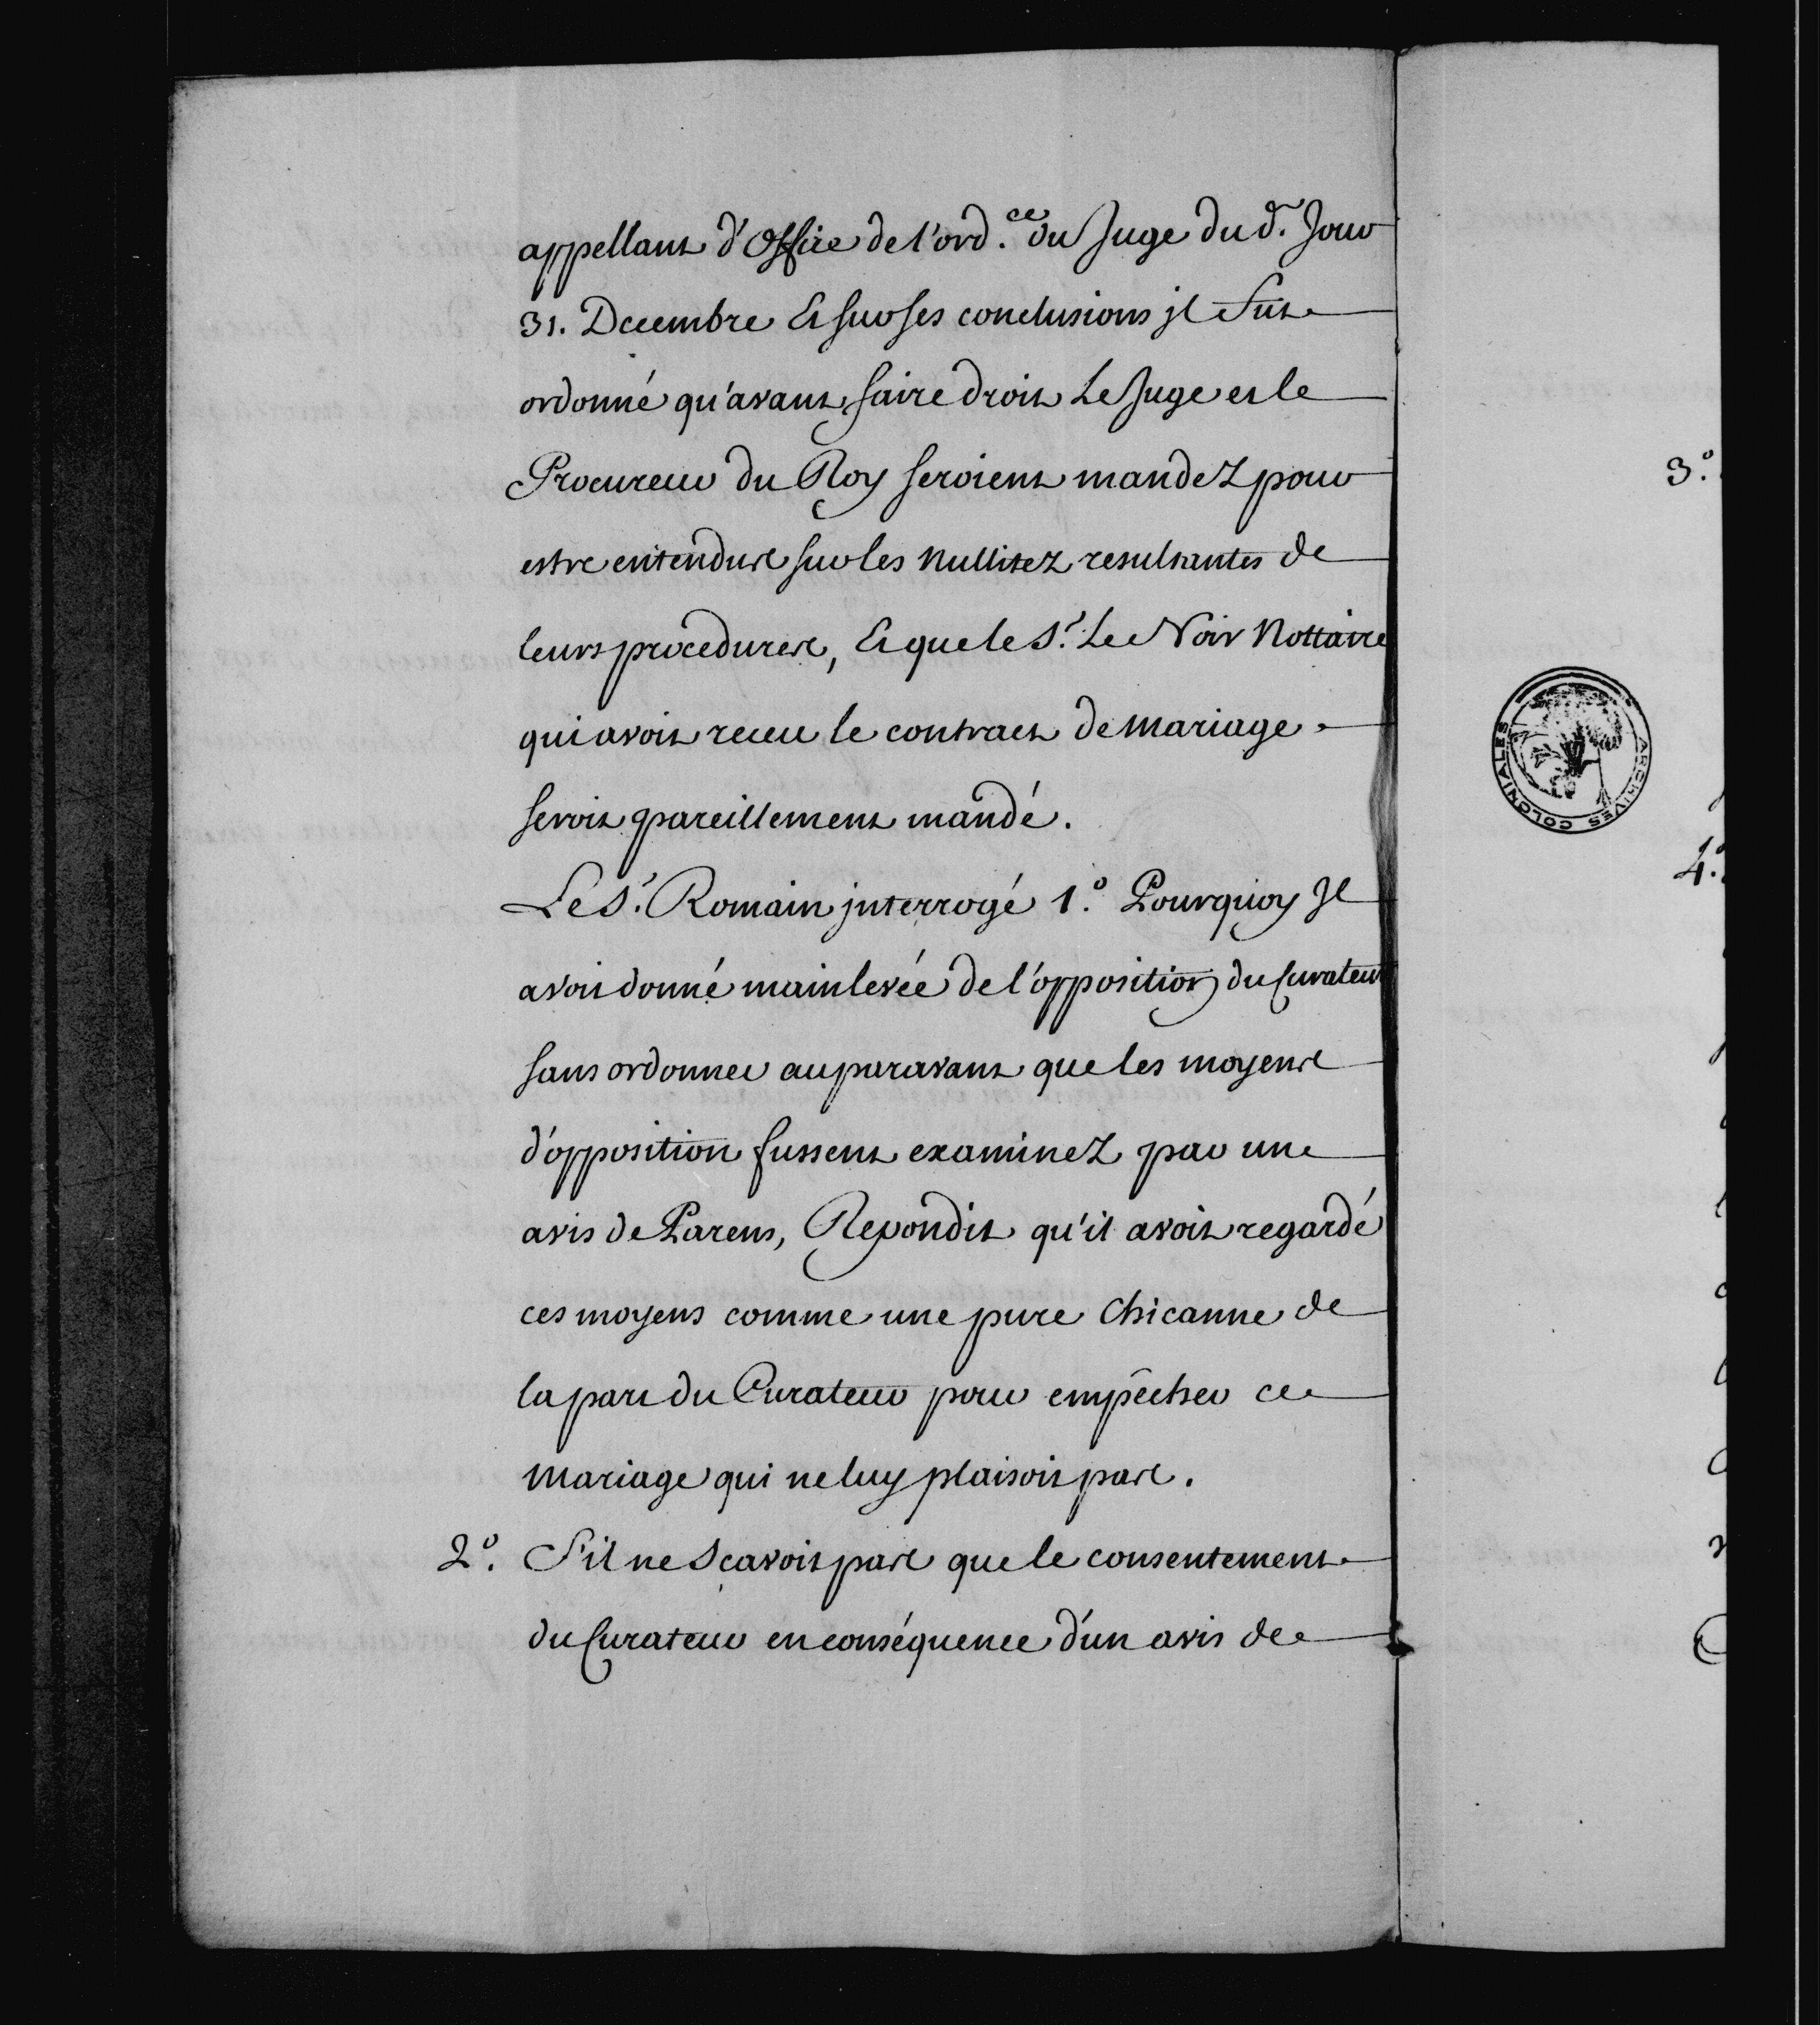 appellant d'Office de l'ord.ce du Juge du d. Jour
31. Decembre Et sur ses conclusions jl fut
ordonné qu'avant faire droit Le Juge et le
Procureur du Roy seroient mandez pour
estre entendus sur les Nullitez resultantes de
leurs procedures, Et que le Sr. Le Noir Nottaire
qui avoit receu le contract de Mariage
seroit pareillement mandé.
Le Sr. Romain jnterrogé 1.º Pourquoy Jl
avoit donné mainlevée de l'opposition du Curateur
sans ordonner auparavant que les moyens
d'opposition fussent examinez par une
avis de Parens, Repondit qu'il avoit regardé
ces moyens comme une pure Chicanne de
la part du Curateur pour empêcher ce
Mariage qui ne luy plaisoit pas.
2º. S'il ne Sçavoit pas que le consentement
du Curateur en conséquence d'un avis de
3.º
ARCHIVES COLONIALES
4.º